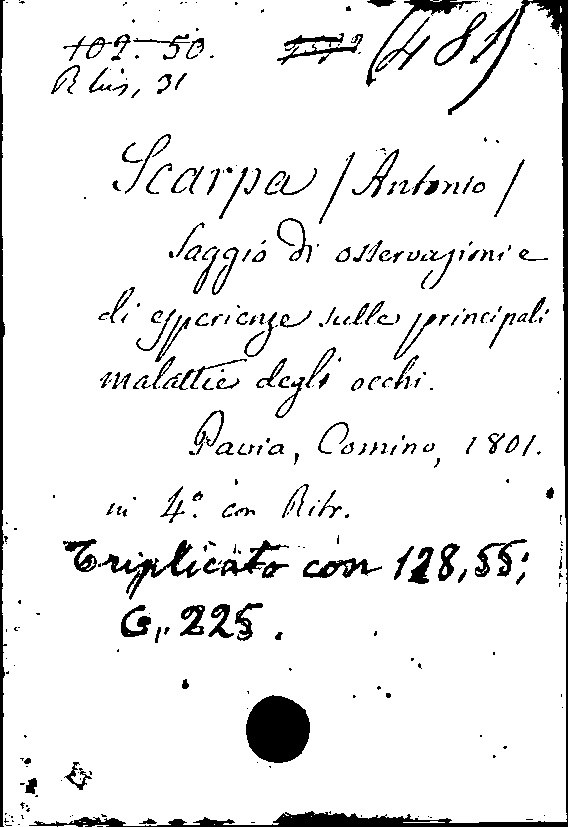 102. 50. (481)
R bis, 31
Scarpa /Antonio/
Saggio di osservazioni e
di esperienze sulle principali
malattie degli occhi.
Pavia, Comino, 1801.
in 4.° con Ritr.
Triplicato con 128,55;
G,. 225.